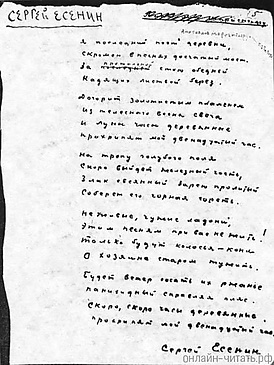 СЕРГЕЙ ЕСЕНИН
5
Анатолию Мариенгофу
Я последний поэт деревни,
Скромен в песнях дощатый мост.
За прощальной стою обедней
Кадящих листвой берез.
Догорит золотистым пламенем
Из телесного воска свеча
И луны часы деревянные
Прохрипят мой двенадцатый час.
На тропу голубого поля
Скоро выйдет железный гость,
Злак овсяный зарею пролитый
Соберет его черная горсть.
Не живые, чужие ладони,
Этим песням при вас не жить!
Только будут колосья-кони
О хозяине старом тужить.
Будет ветер сосать их ржанье
Панихидный справляя пляс.
Скоро, скоро часы деревянные
Прохрипят мой двенадцатый час
Сергей Есенин
онлайн-читать.рф